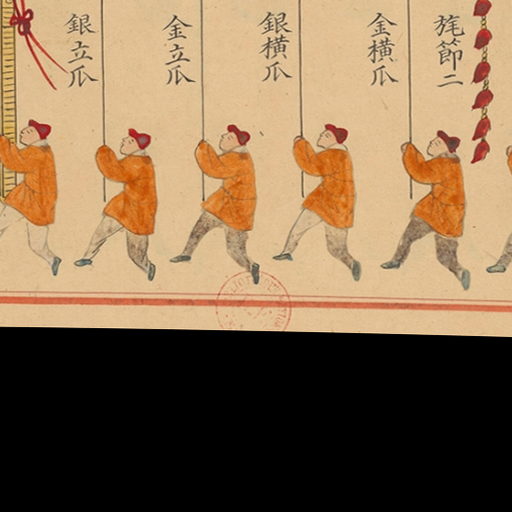 旄節二
金橫瓜
銀橫瓜
金立瓜
銀立瓜